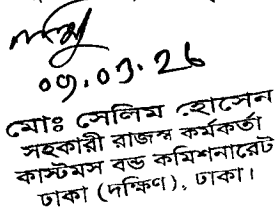 09.03.26
মোঃ সেলিম হোসেন
সহকারী রাজস্ব কর্মকর্তা
কাস্টমস বন্ড কমিশনারেট
ঢাকা (দক্ষিণ), ঢাকা।